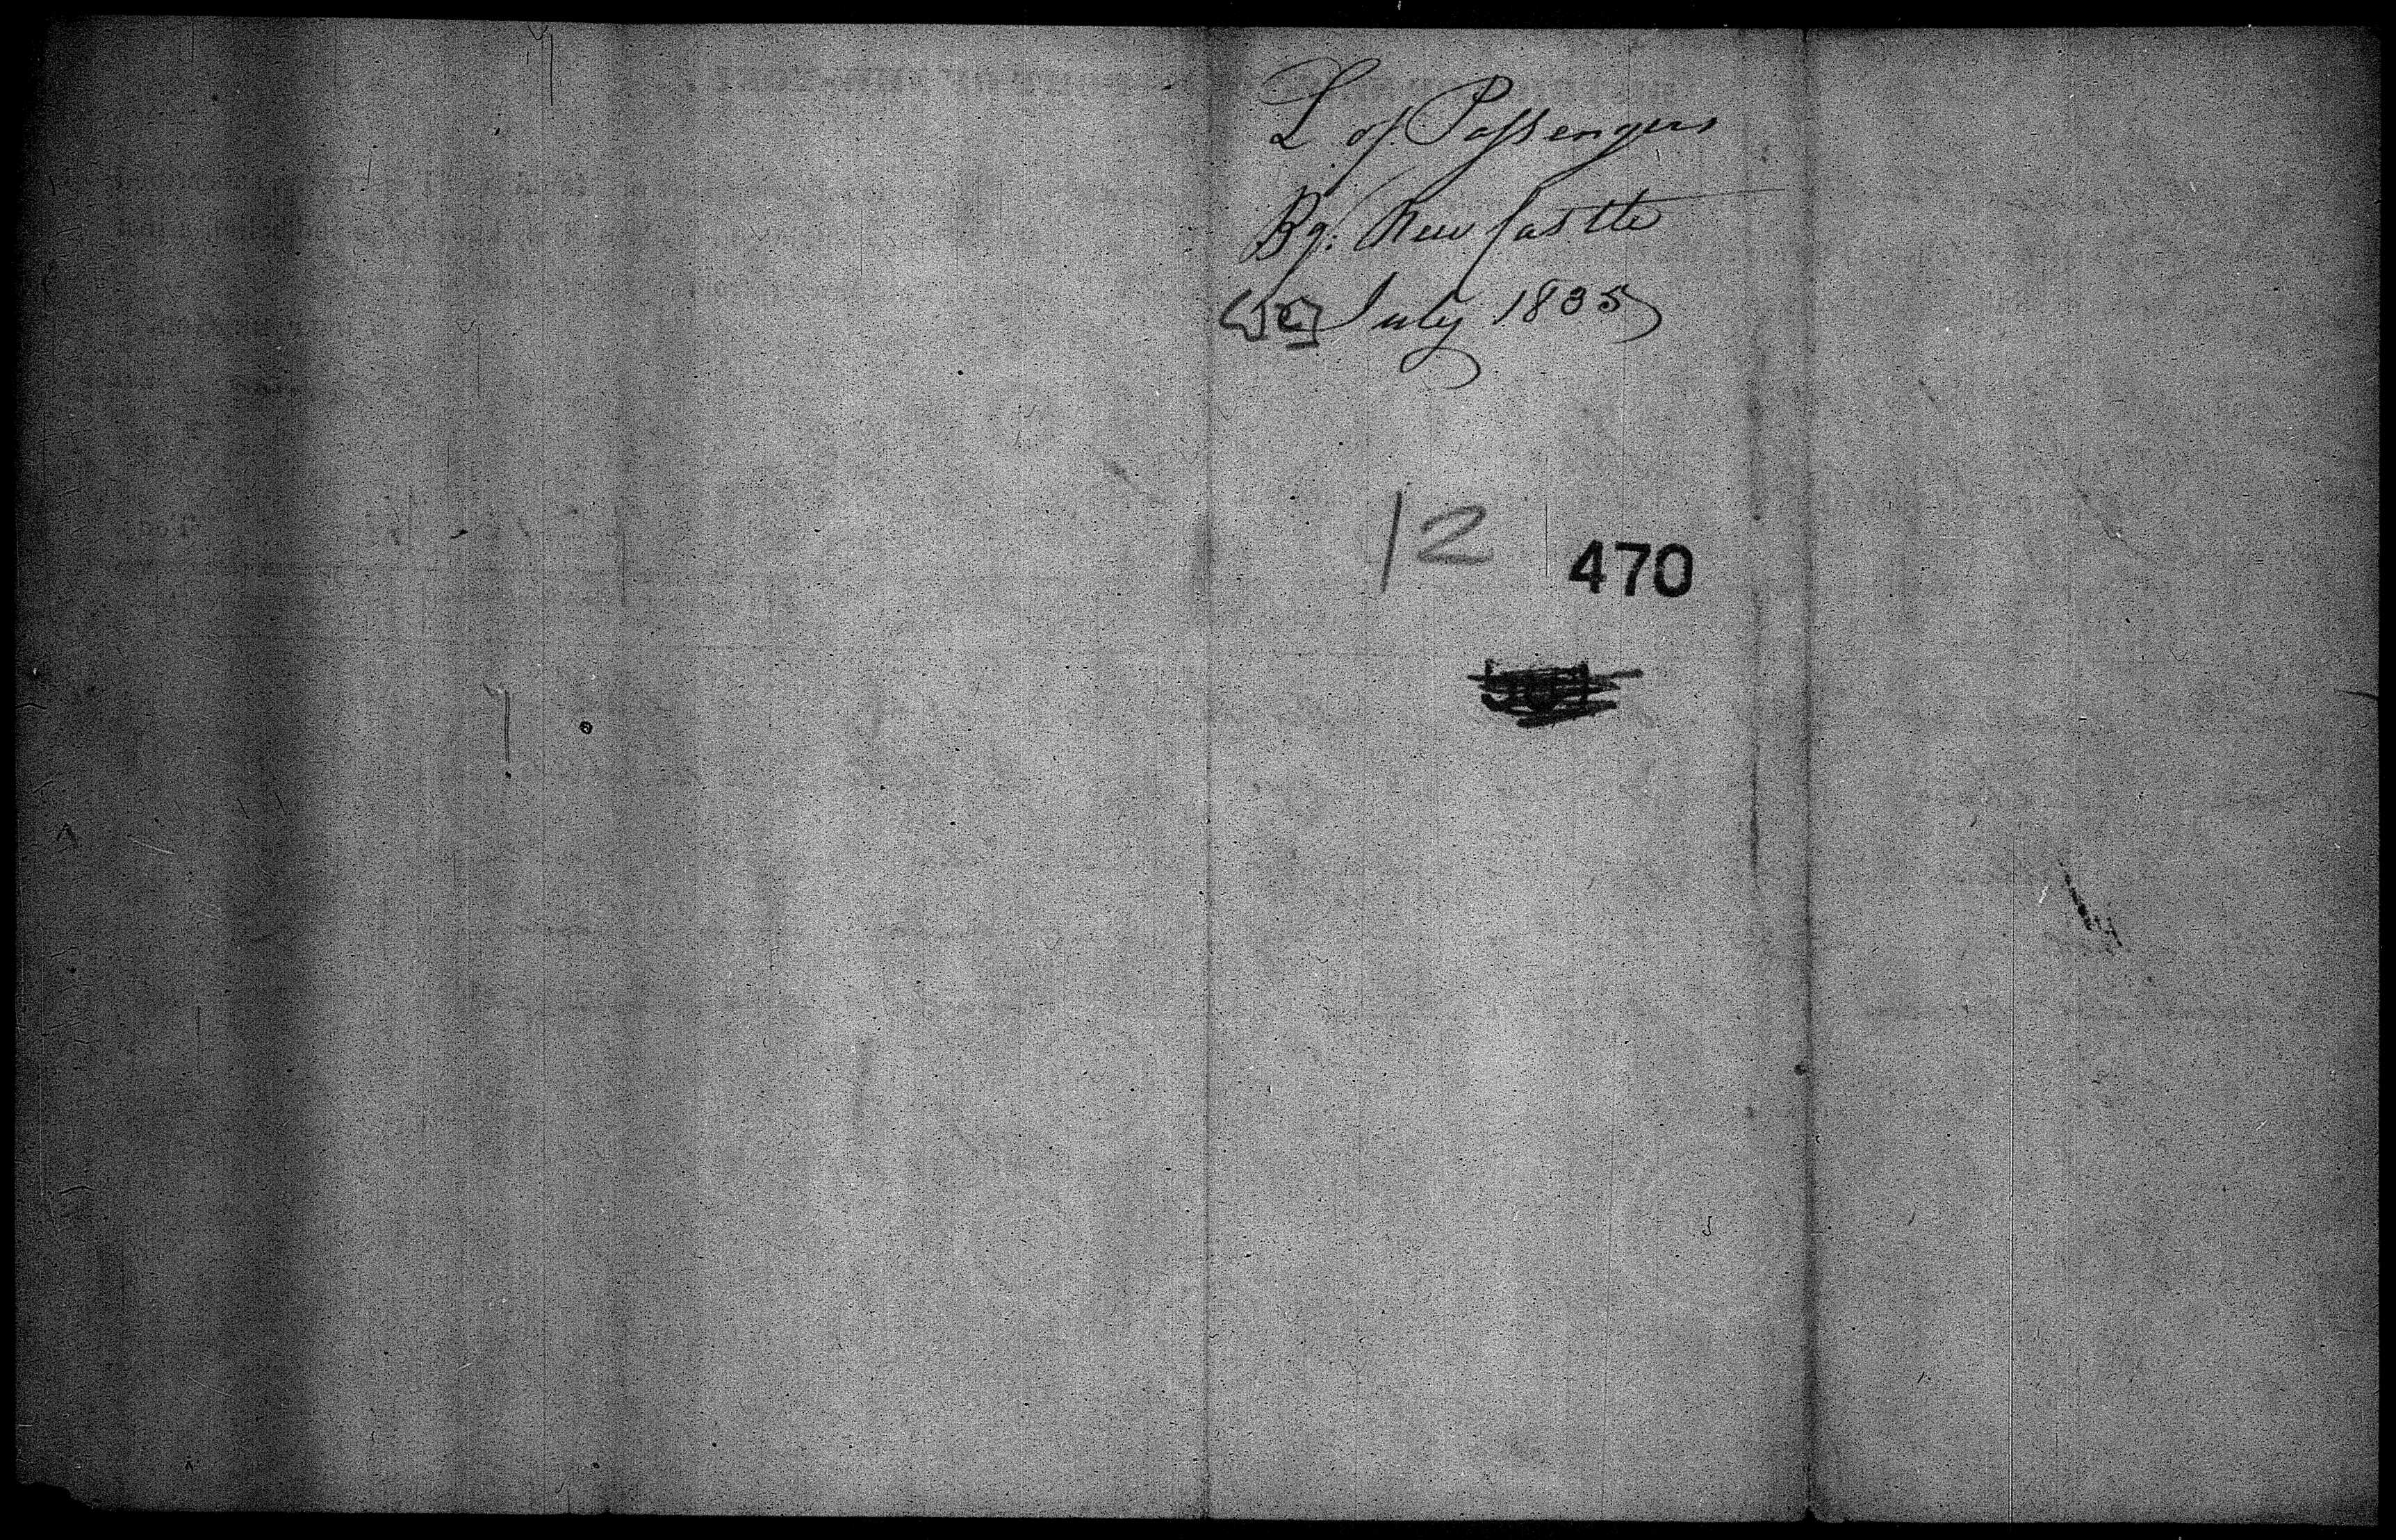 L. of Passengers
Bg: New Castle
July 1835
12
470